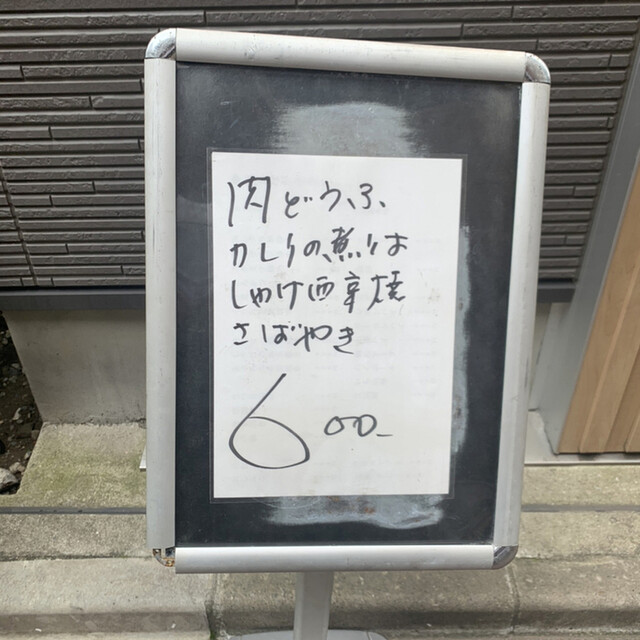 肉どうふ
カレイの煮りは
しゃけ西京焼
さばやき
600-